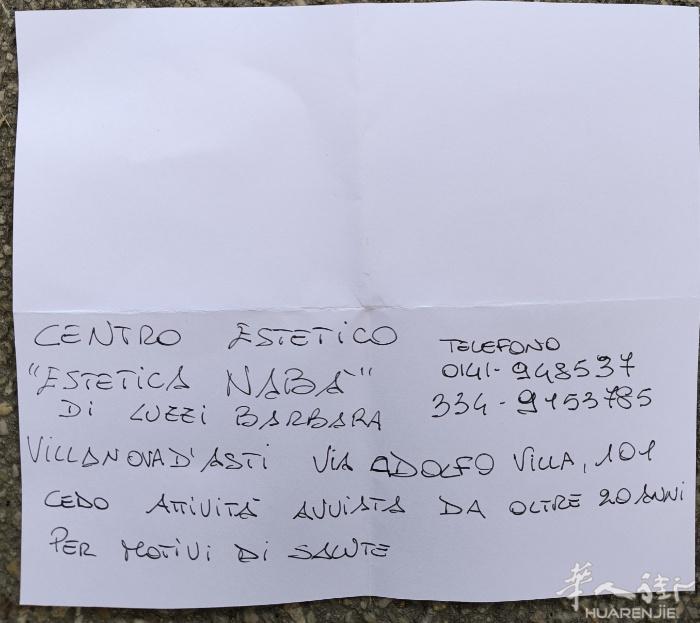 CENTRO ESTETICO
"ESTETICA NABÀ"
DI LUZZI BARBARA
TELEFONO
0141-948537
334-9153785
VILLANOVA D'ASTI VIA ADOLFO VILLA, 101
CEDO ATTIVITÀ AVVIATA DA OLTRE 20 ANNI
PER MOTIVI DI SALUTE
华人街
HUARENJIE